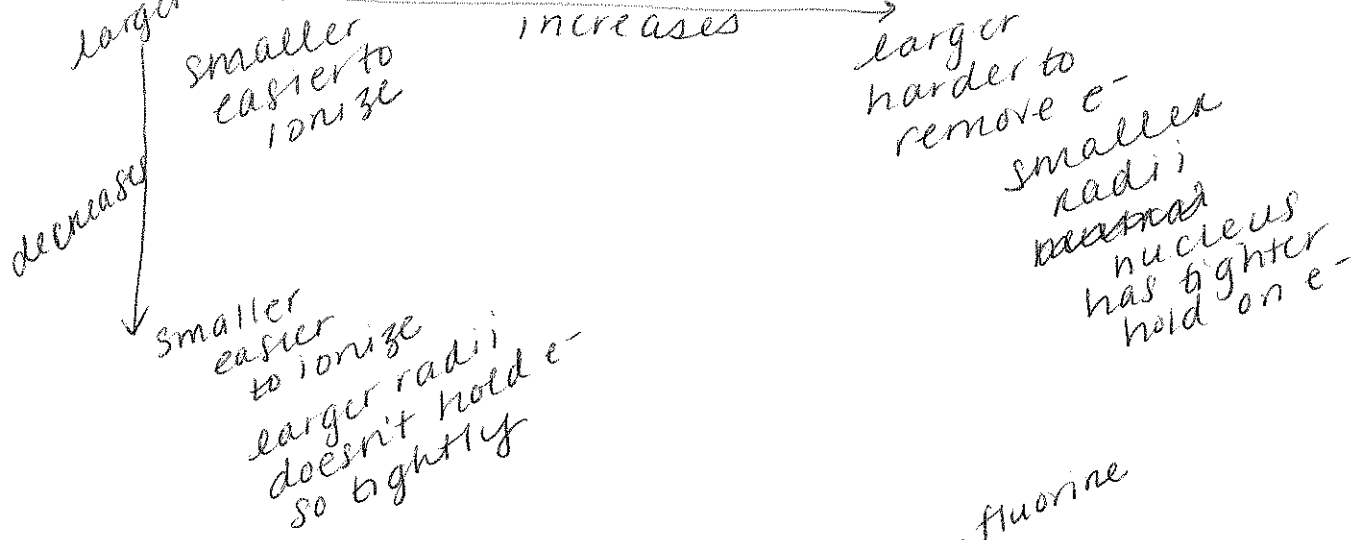 larger
increases
smaller
easier to
ionize
larger
harder to
remove e-
smaller
radii
nucleus
has tighter
hold on e-
decreases
smaller
easier
to ionize
larger radii
doesn't hold e-
so tightly
fluorine